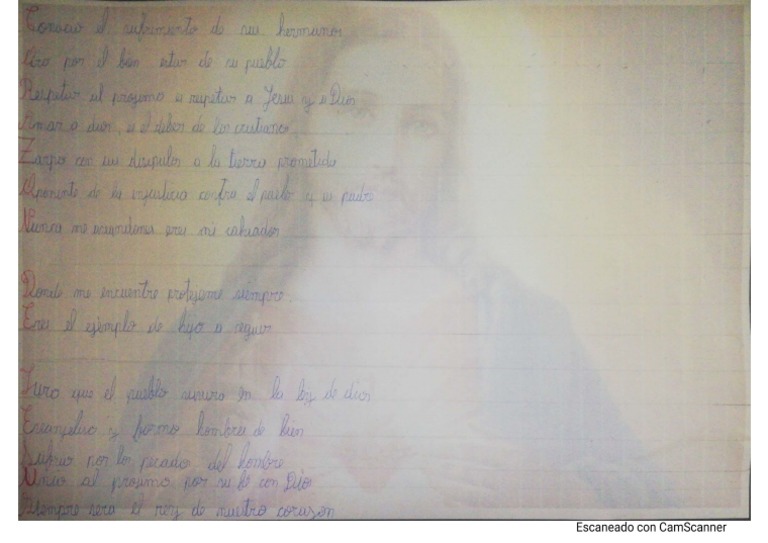 Conocio el sufrimiento de sus hermanos
Oro por el bien estar de su pueblo
Respetar al projimo es respetar a Jesus y a Dios
Amar a dios, es el deber de los cristianos
Zarpo con sus disipulos a la tierra prometida
Oponente de la injusticia contra el pueblo y su padre
Nunca me abandones eres mi salvador
Donde me encuentre protejeme siempre.
Eres el ejemplo de hijo a seguir
Juro que el pueblo en la ley de dios
y formo hombres de bien
Sufrio por los pecados del hombre
Unio al proximo por su fé con Dios
Siempre sera el rey de nuestro corazon
Escaneado con CamScanner